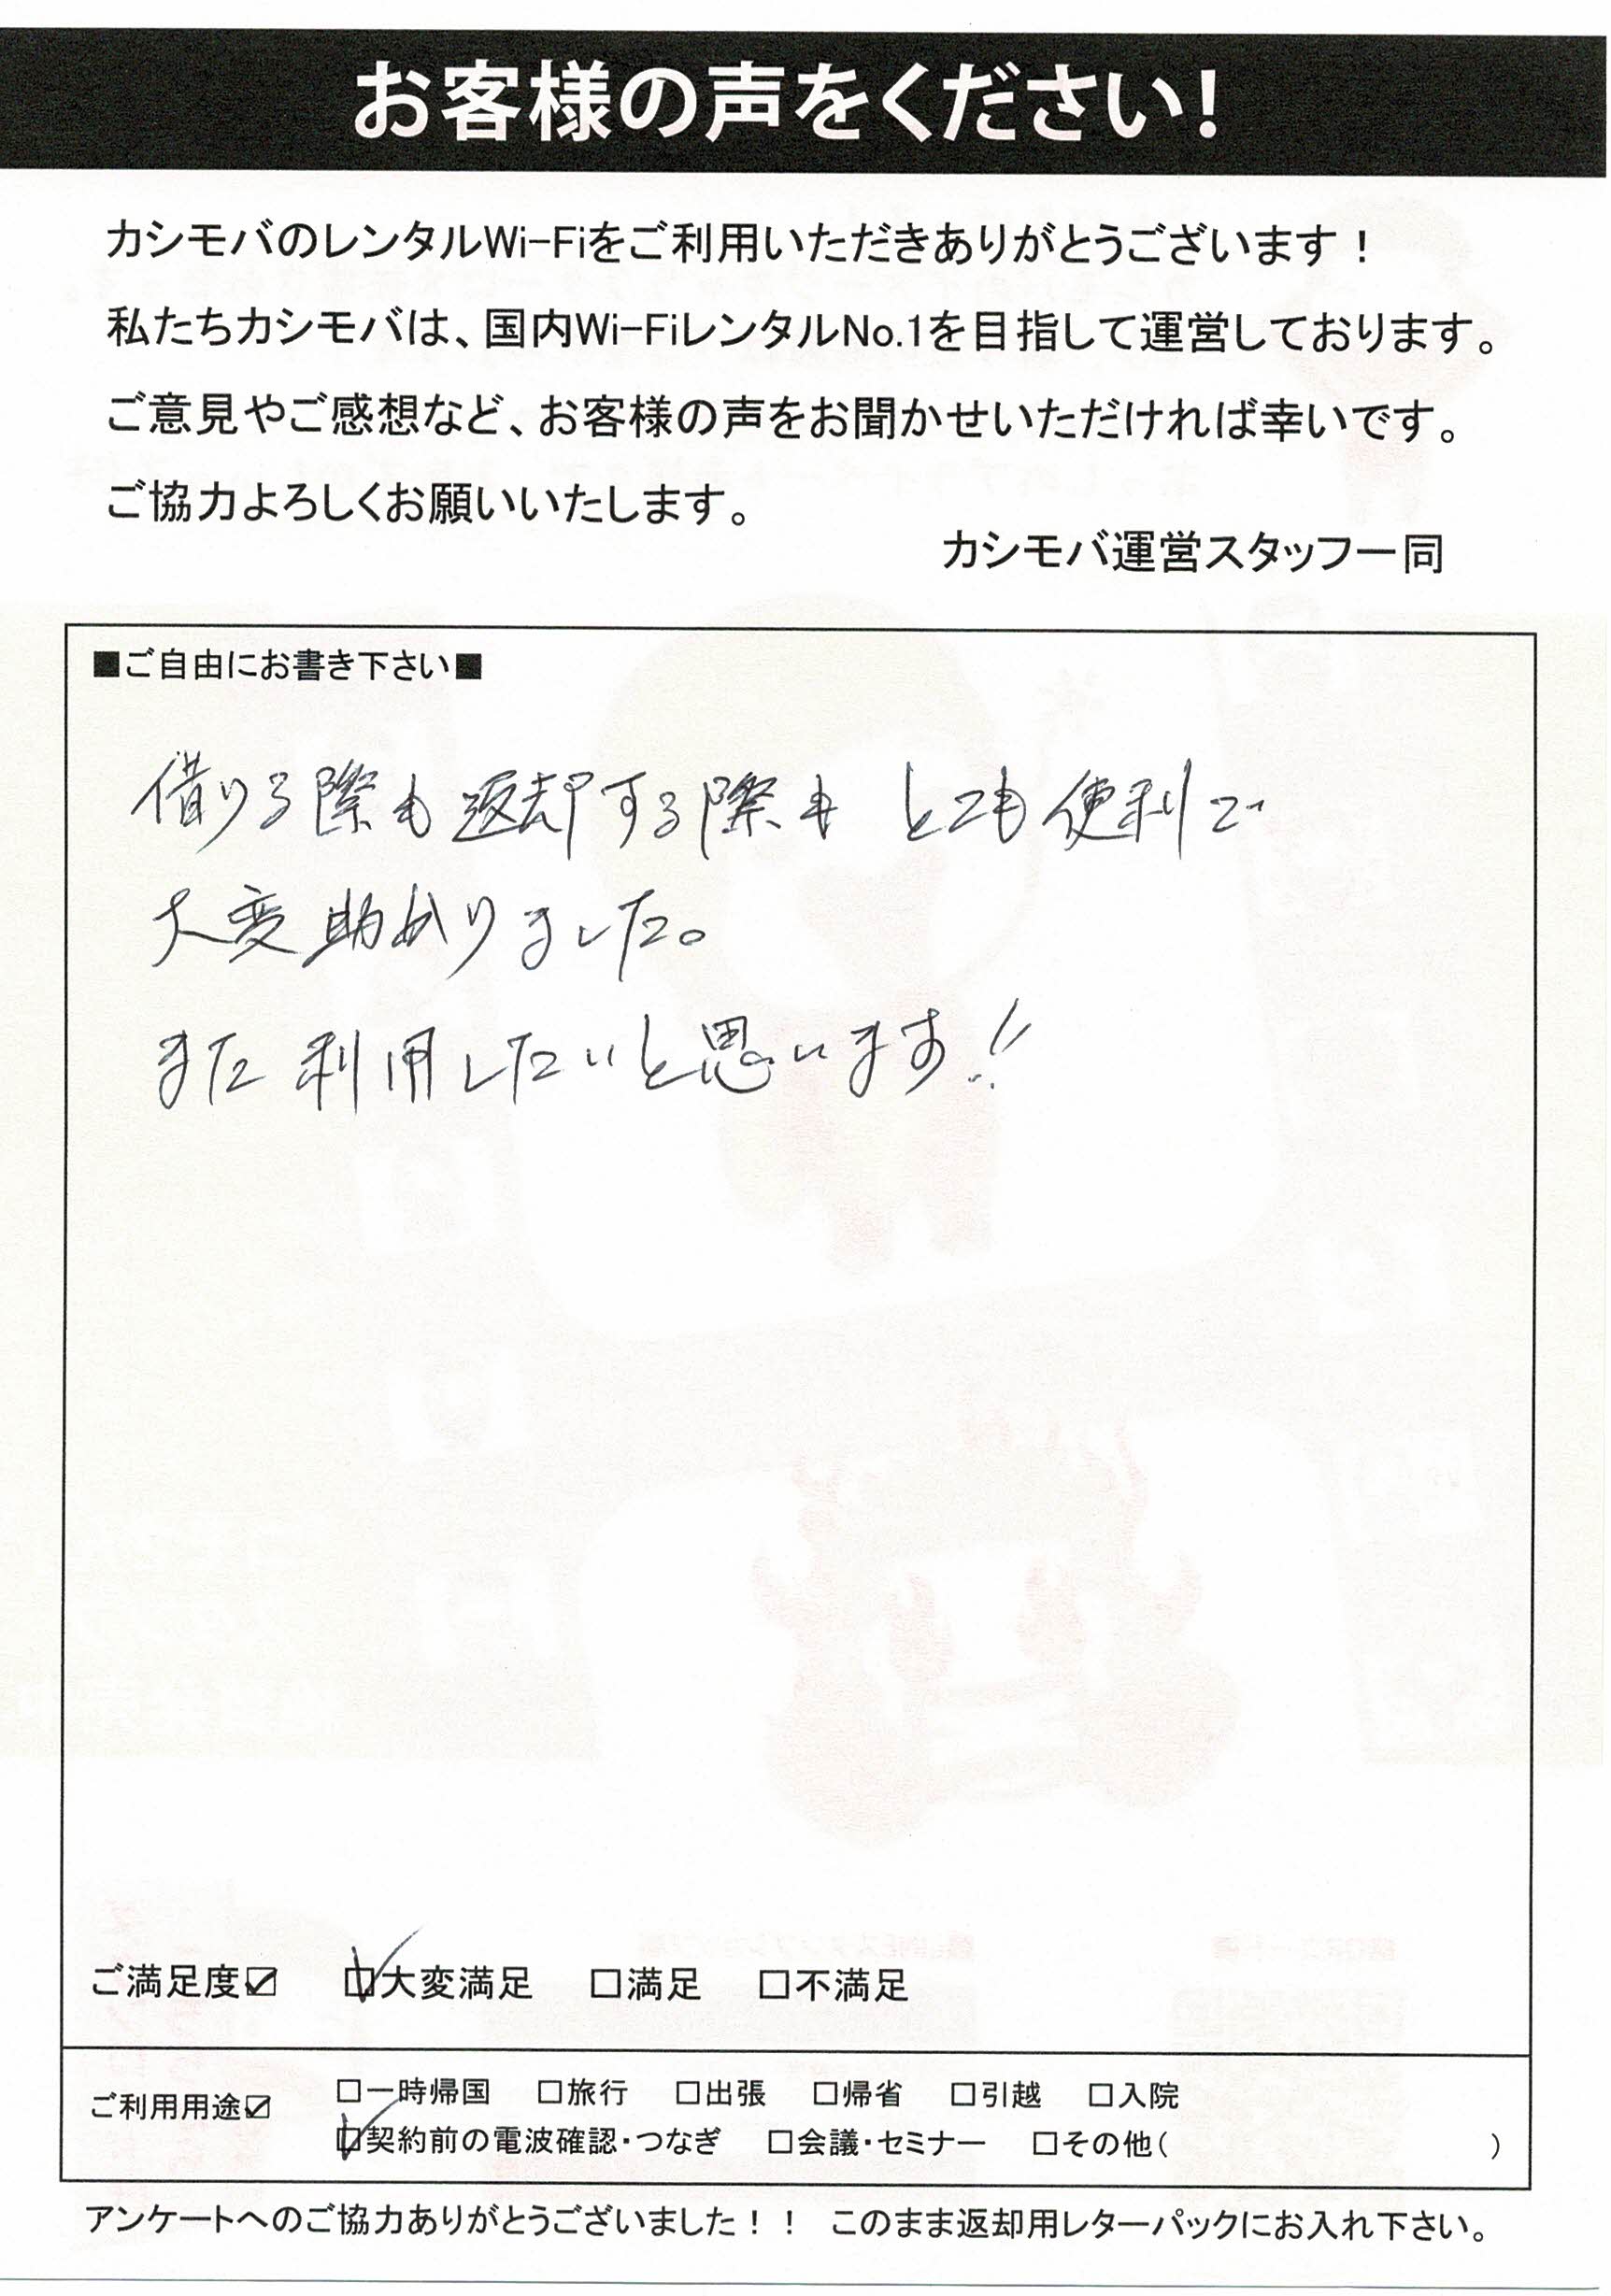 お客様の声をください!
カシモバのレンタルWi-Fiをご利用いただきありがとうございます！
私たちカシモバは、国内Wi-FiレンタルNo.1を目指して運営しております。
ご意見やご感想など、お客様の声をお聞かせいただければ幸いです。
ご協力よろしくお願いいたします。
カシモバ運営スタッフ一同
■ご自由にお書き下さい■
借りる際も返却する際も とても便利で
大変助かりました。
また利用したいと思います!!
ご満足度☑ ☑大変満足 □満足 □不満足
ご利用用途☑ □一時帰国 □旅行 □出張 □帰省 □引越 □入院
☑契約前の電波確認・つなぎ □会議・セミナー □その他( )
アンケートへのご協力ありがとうございました！！ このまま返却用レターパックにお入れ下さい。